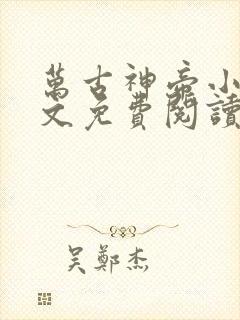 萬古神帝小
文免費閱讀
吴鄭杰